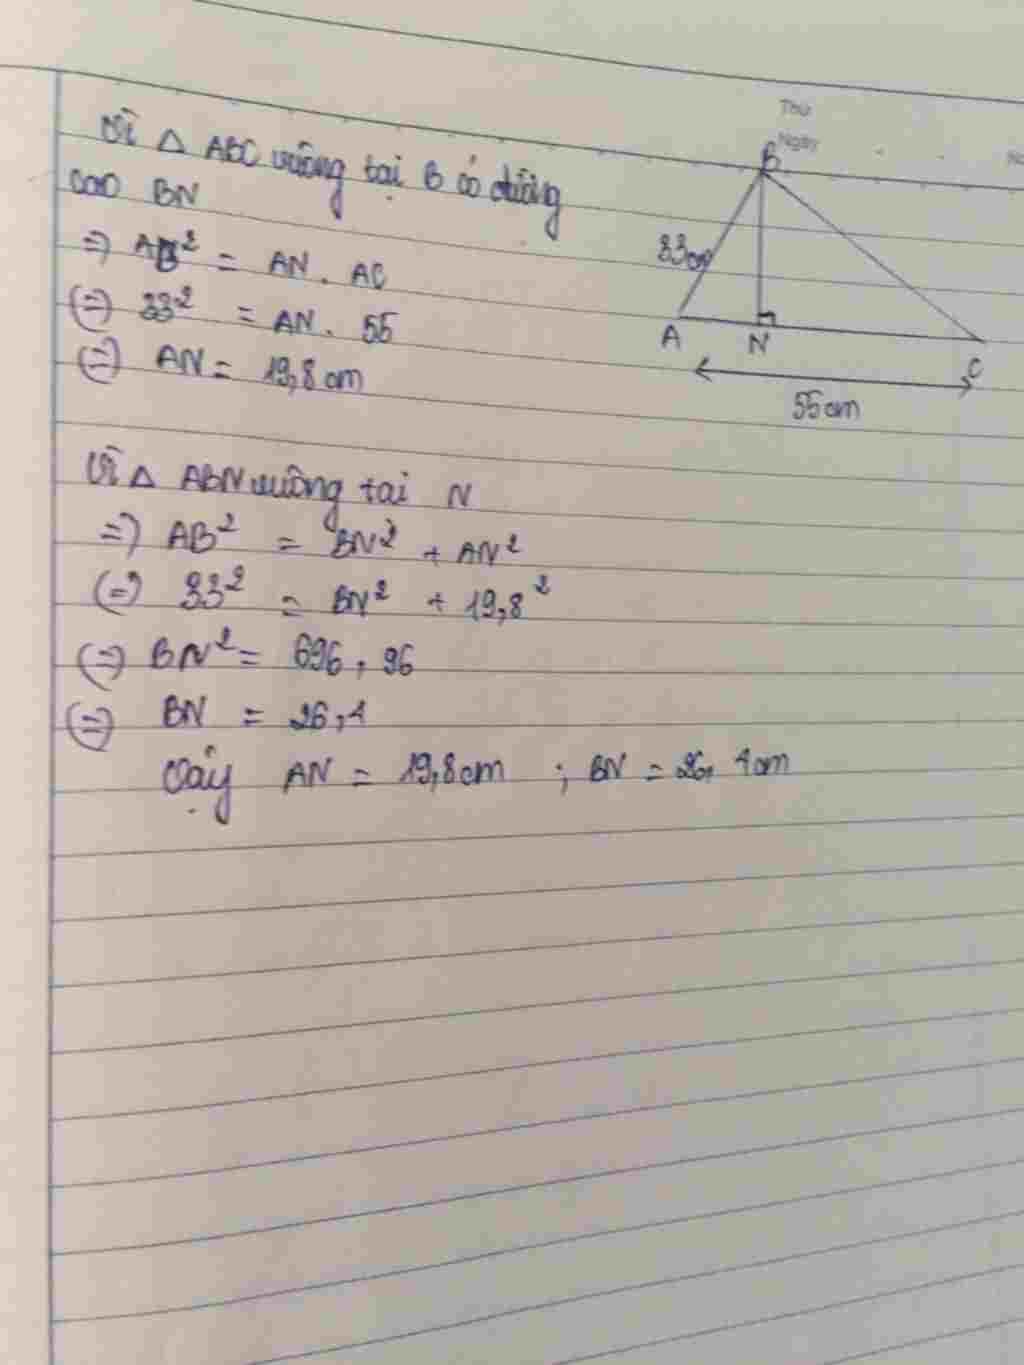 Thứ
Ngày
No
Vì △ ABC vuông tại B có đường
cao BN
=> AB² = AN . AC
(=) 33² = AN . 55
(=) AN = 19,8 cm
B
33cm
A
N
C
55cm
Vì △ ABN vuông tai N
=) AB² = BN² + AN²
(=) 33² = BN² + 19,8²
(=) BN² = 696,96
(=) BN = 26,4
Vậy AN = 19,8cm ; BN = 26,4cm